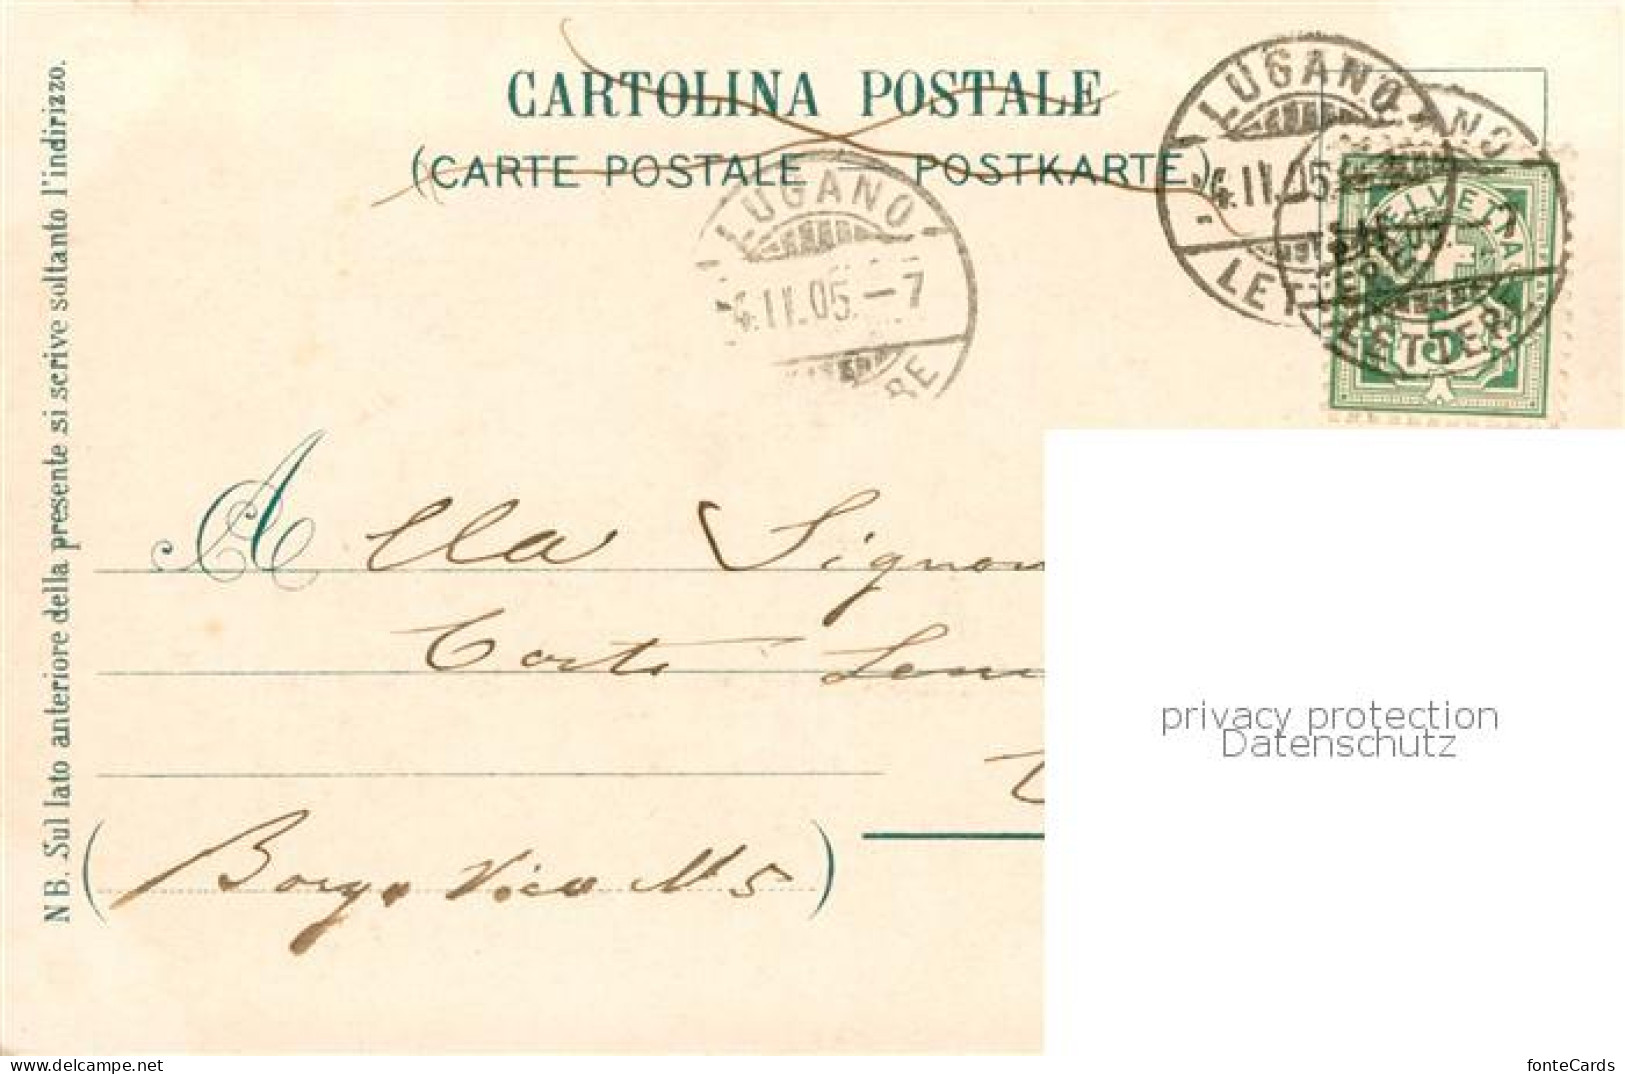 CARTOLINA POSTALE
(CARTE POSTALE — POSTKARTE)
LUGANO
4.II.05.
LETTERE
LUGANO
4.II.05.–7
LETTERE
HELVETIA
5
LUGANO
4.II.05.–7
RE
Alla Signor
Corti
Borgo Vico N° 5
NB. Sul lato anteriore della presente si scrive soltanto l'indirizzo.
privacy protection
Datenschutz
fonteCards